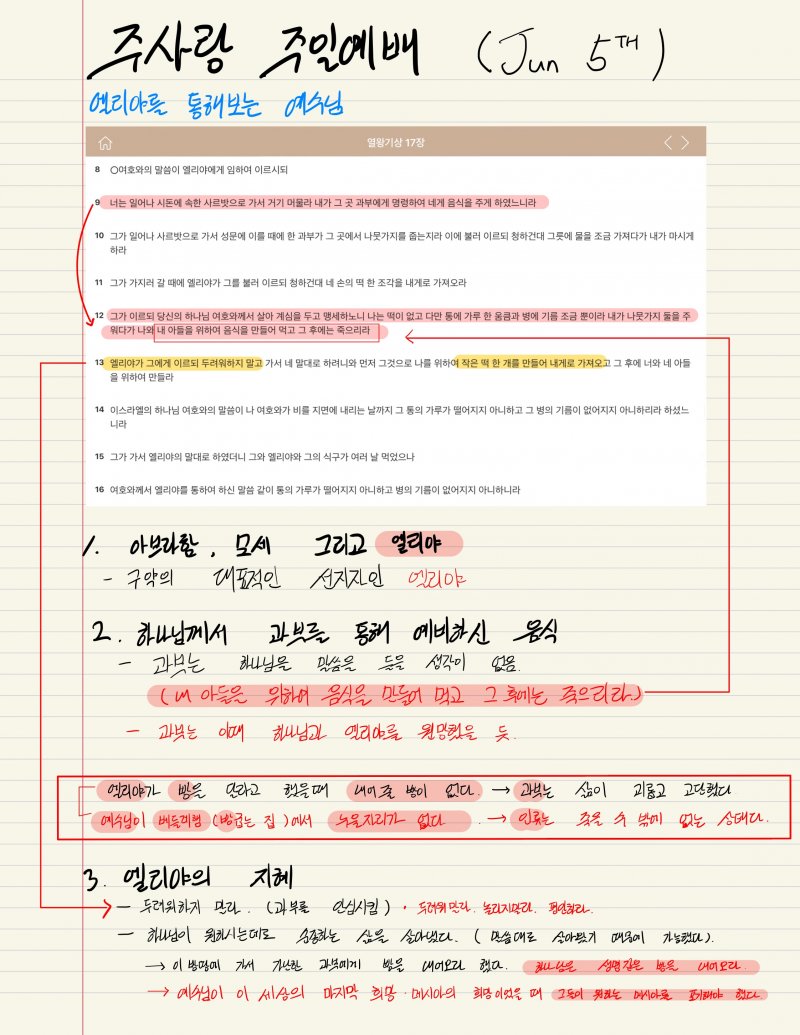 주사랑 주일예배 (Jun 5TH)
엘리야를 통해보는 예수님
열왕기상 17장
8 ○여호와의 말씀이 엘리야에게 임하여 이르시되
9 너는 일어나 시돈에 속한 사르밧으로 가서 거기 머물라 내가 그 곳 과부에게 명령하여 네게 음식을 주게 하였느니라
10 그가 일어나 사르밧으로 가서 성문에 이를 때에 한 과부가 그 곳에서 나뭇가지를 줍는지라 이에 불러 이르되 청하건대 그릇에 물을 조금 가져다가 내가 마시게
하라
11 그가 가지러 갈 때에 엘리야가 그를 불러 이르되 청하건대 네 손의 떡 한 조각을 내게로 가져오라
12 그가 이르되 당신의 하나님 여호와께서 살아 계심을 두고 맹세하노니 나는 떡이 없고 다만 통에 가루 한 움큼과 병에 기름 조금 뿐이라 내가 나뭇가지 둘을 주
워다가 나와 내 아들을 위하여 음식을 만들어 먹고 그 후에는 죽으리라
13 엘리야가 그에게 이르되 두려워하지 말고 가서 네 말대로 하려니와 먼저 그것으로 나를 위하여 작은 떡 한 개를 만들어 내게로 가져오고 그 후에 너와 네 아들
을 위하여 만들라
14 이스라엘의 하나님 여호와의 말씀이 나 여호와가 비를 지면에 내리는 날까지 그 통의 가루가 떨어지지 아니하고 그 병의 기름이 없어지지 아니하리라 하셨느
니라
15 그가 가서 엘리야의 말대로 하였더니 그와 엘리야와 그의 식구가 여러 날 먹었으나
16 여호와께서 엘리야를 통하여 하신 말씀 같이 통의 가루가 떨어지지 아니하고 병의 기름이 없어지지 아니하니라
1. 아브라함, 모세 그리고 엘리야
- 구약의 대표적인 선지자인 엘리야
2. 하나님께서 과부를 통해 예비하신 음식
- 과부는 하나님을 말씀을 들을 생각이 없음.
(내 아들을 위하여 음식을 만들어 먹고 그 후에는 죽으리라.)
- 과부는 이때 하나님과 엘리야를 원망했을 듯.
엘리야가 빵을 달라고 했을때 내어줄 빵이 없다. → 과부는 삶이 괴롭고 고단했다
예수님이 베들레헴 (빵굽는 집)에서 누울자리가 없다. → 인류는 죽을 수 밖에 없는 상태다.
3. 엘리야의 지혜
- 두려워하지 말라. (과부를 안심시킴) · 두려워말라. 놀라지말라. 평안하라.
- 하나님이 원하시는데로 순종하는 삶을 살아냈다. (말씀대로 살아왔기 때문에 가능했다).
→ 이 방땅에 가서 가난한 과부에게 빵을 내어오라 했다. 하나님은 생명같은 빵을 내어오라.
→ 예수님이 이 세상의 마지막 희망·메시아의 희망이었을 때 그들이 원하는 메시아를 포기해야 했다.